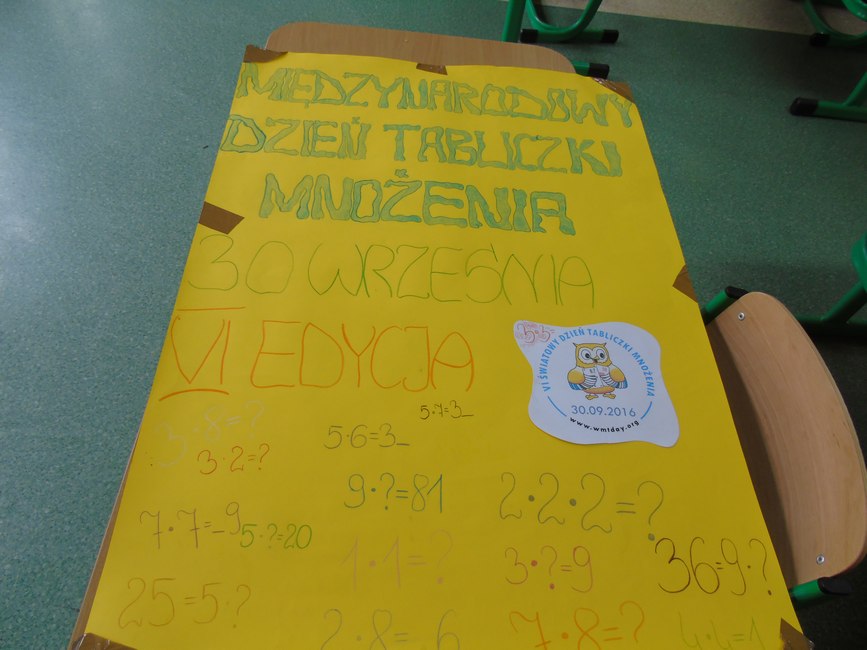 MIĘDZYNARODOWY
DZIEŃ TABLICZKI
MNOŻENIA
30 WRZEŚNIA
VI EDYCJA
VI ŚWIATOWY DZIEŃ TABLICZKI MNOŻENIA
30.09.2016
www.wmtday.org
3·8=?
3·2=?
5·6=3_
5·7=3_
9·?=81
2·2·2=?
7·7=_9
5·?=20
1·1=?
3·?=9
36=9·?
25=5·?
2·8=_6
7·8=?
4·4=1